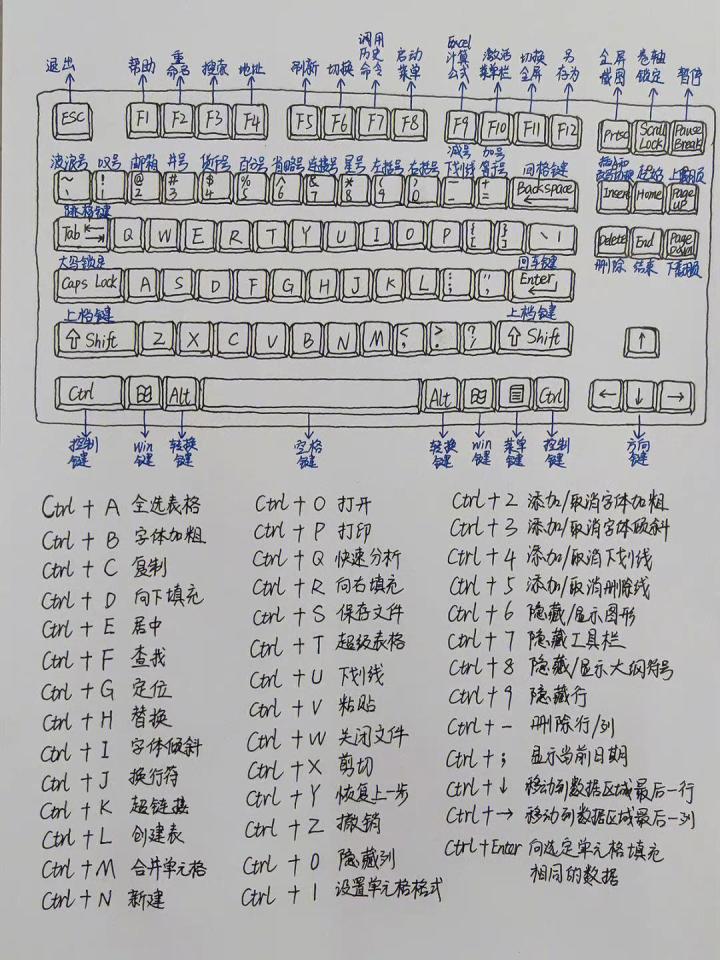 退出 帮助 重命名 搜索 地址 刷新 切换 调用历史命令 启动菜单 Excel计算公式 激活菜单栏 切换全屏 另存为 全屏截图 卷轴锁定 暂停
ESC F1 F2 F3 F4 F5 F6 F7 F8 F9 F10 F11 F12 Prtsc Scroll Lock Pause Break
波浪号 叹号 邮箱 井号 货币号 百分号 省略号 连接号 星号 左括号 右括号 减号下划线 加号等于号 回格键
~ ` ! 1 @ 2 # 3 $ 4 % 5 ^ 6 & 7 * 8 ( 9 ) 0 — - + = Backspace Insert Home Page UP
跳格键
Tab Q W E R T Y U I O P { [ } ] \ | Delete End Page Down
大写锁定 回车键 删除 结束 下翻页
Caps Lock A S D F G H J K L : ; " , Enter
上档键 上档键
Shift Z X C V B N M < , > . ? / Shift ↑
Ctrl Alt Alt Ctrl ← ↓ →
控制键 win键 转换键 空格键 转换键 win键 菜单键 控制键 方向键
Ctrl + A 全选表格
Ctrl + B 字体加粗
Ctrl + C 复制
Ctrl + D 向下填充
Ctrl + E 居中
Ctrl + F 查找
Ctrl + G 定位
Ctrl + H 替换
Ctrl + I 字体倾斜
Ctrl + J 换行符
Ctrl + K 超链接
Ctrl + L 创建表
Ctrl + M 合并单元格
Ctrl + N 新建
Ctrl + O 打开
Ctrl + P 打印
Ctrl + Q 快速分析
Ctrl + R 向右填充
Ctrl + S 保存文件
Ctrl + T 超级表格
Ctrl + U 下划线
Ctrl + V 粘贴
Ctrl + W 关闭文件
Ctrl + X 剪切
Ctrl + Y 恢复上一步
Ctrl + Z 撤销
Ctrl + 0 隐藏列
Ctrl + 1 设置单元格格式
Ctrl + 2 添加/取消字体加粗
Ctrl + 3 添加/取消字体倾斜
Ctrl + 4 添加/取消下划线
Ctrl + 5 添加/取消删除线
Ctrl + 6 隐藏/显示图形
Ctrl + 7 隐藏工具栏
Ctrl + 8 隐藏/显示大纲符号
Ctrl + 9 隐藏行
Ctrl + - 删除行/列
Ctrl + ; 显示当前日期
Ctrl + ↓ 移动到数据区域最后一行
Ctrl + → 移动到数据区域最后一列
Ctrl + Enter 向选定单元格填充
相同的数据